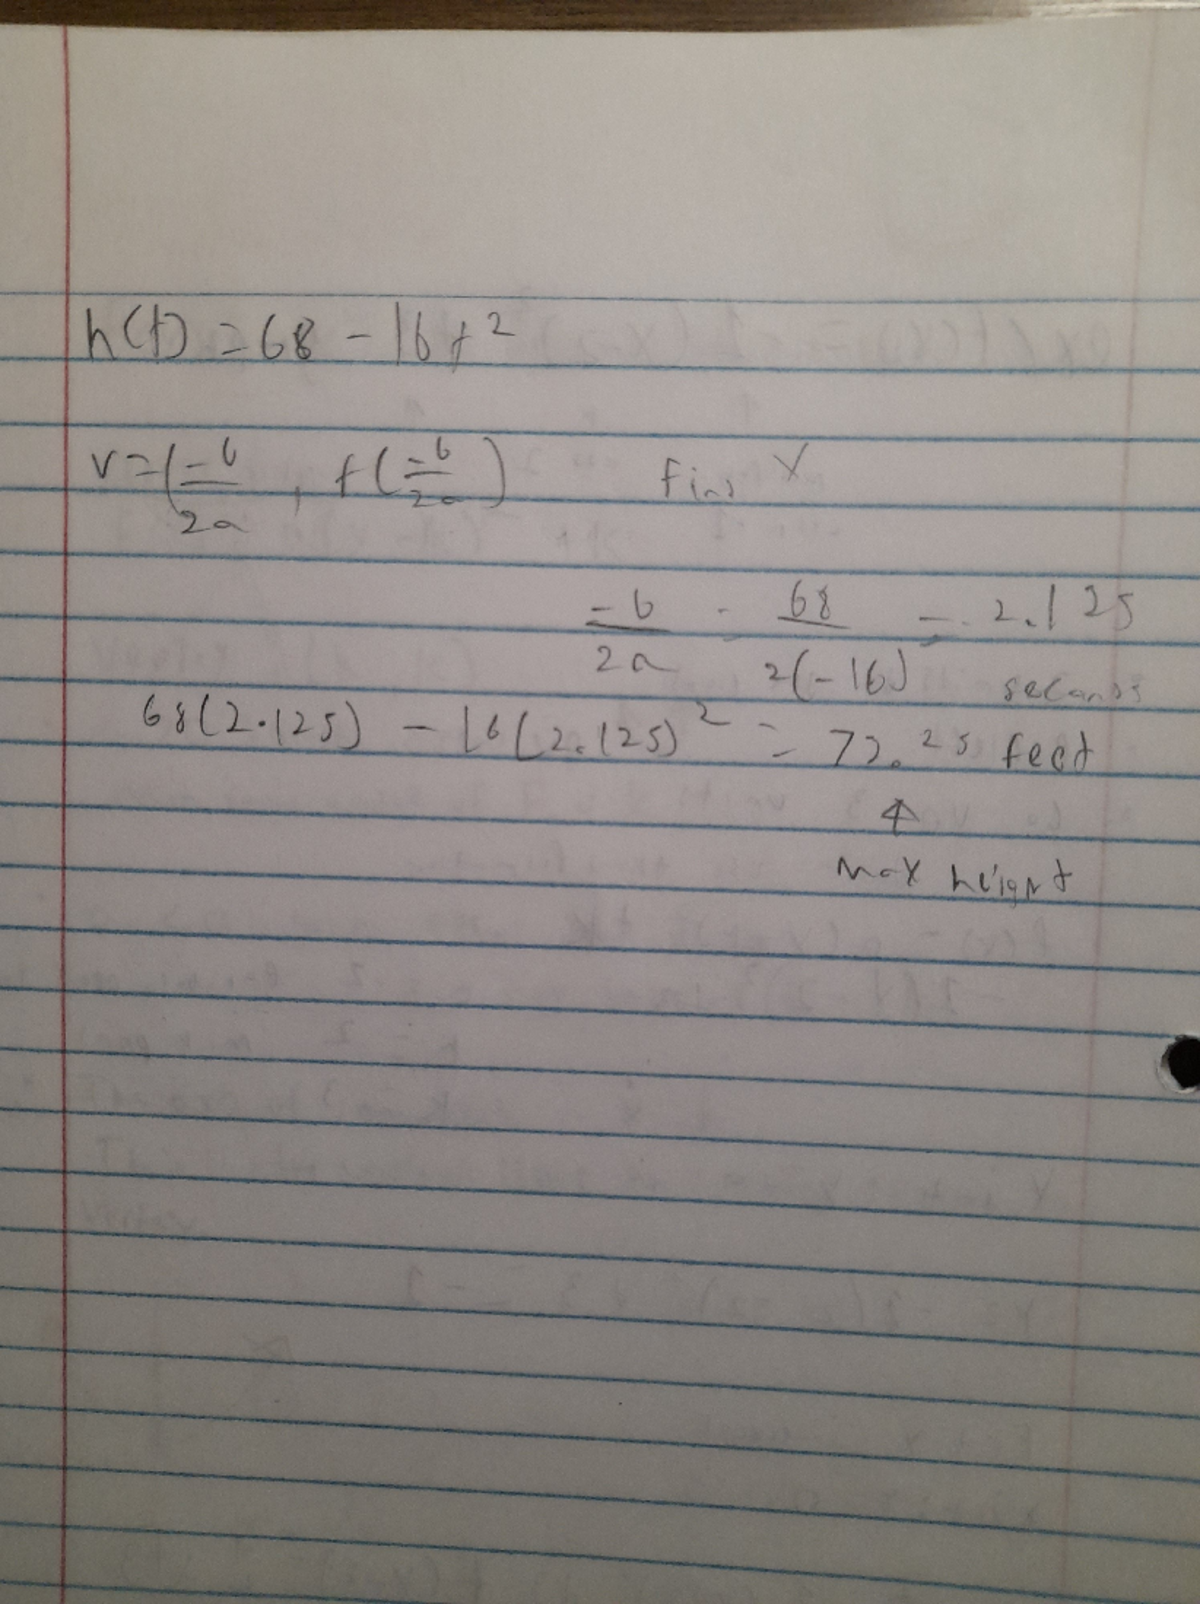 h(t) = 68 - 16t²
v = (-b/2a, f(-b/2a) find x
-b/2a = 68/2(-16) = 2.125 seconds
68(2.125) - 16(2.125)² = 72.25 feet
↑
max height